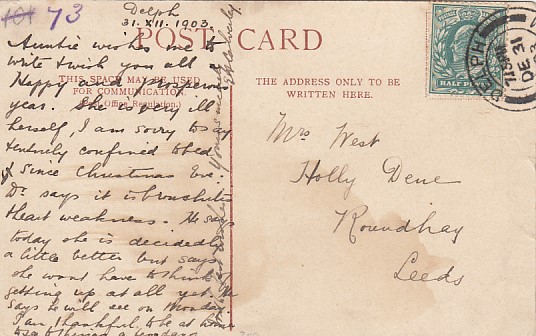 101 73
Delph
31.XII.1903.
POST CARD
THIS SPACE MAY BE USED
FOR COMMUNICATION.
(Post Office Regulation.)
THE ADDRESS ONLY TO BE
WRITTEN HERE.
HALF PENNY
DELPH
DE 31
Auntie wishes me to
write & wish you all a
Happy and Prosperous
year. She is very ill
herself, I am sorry to say
& entirely confined to bed
since Christmas Eve.
Dr. says it is bronchitis
& heart weakness. He says
today she is decidedly
a little better but says
she wont have to think of
getting up at all yet. He
says he will see on Monday
I am thankful to be at home
Yours sincerely
Mrs West
Holly Dene
Roundhay
Leeds